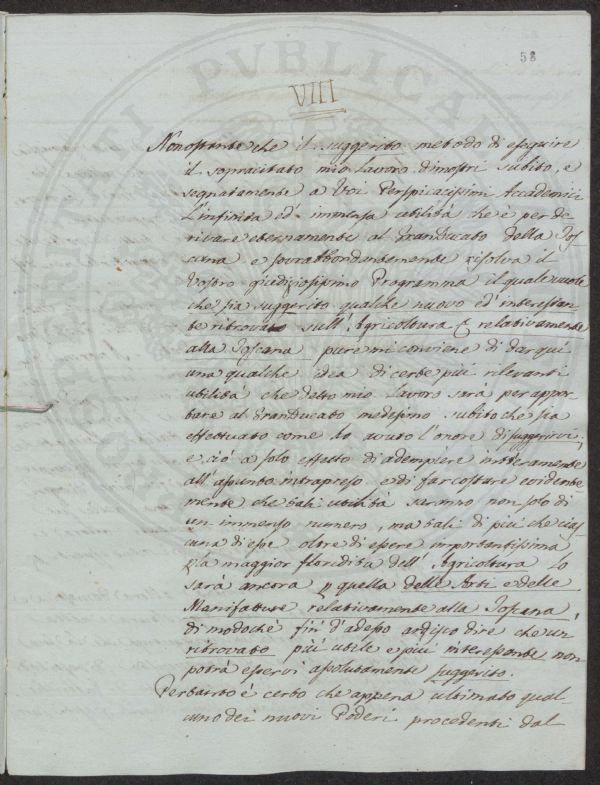 58
VIII
Nonostante che il suggerito metodo di eseguire
il sopracitato mio lavoro dimostri subito, e
segnatamente a Voi Perspicacissimi Accademici
l'infinita ed immensa utilità che è per de
rivare eternamente al GranDucato della Tos
cana e sovrabbondantemente risolva il
Vostro giudiziosissimo Programma il quale vuole
che sia suggerito qualche nuovo ed interessan
te ritrovato sull'Agricoltura e relativamente
alla Toscana pure mi conviene di dar quì
una qualche idea di certe più rilevanti
utilità che detto mio lavoro sarà per appor
tare al GranDucato medesimo subito che sia
effettuato come ho avuto l'onore di suggerirvi,
e ciò a solo effetto di adempiere interamente
all'assunto intrapreso e di far costare evidente
mente che tali utilità saranno non solo di
un immenso numero, ma tali di più che cias
una di esse oltre di essere importantissima
p la maggior floridità dell'Agricoltura lo
sarà ancora p quella delle Arti e delle
Manifatture relativamente alla Toscana,
di modochè fin d'adesso ardisco dire che un
ritrovato più utile e più interessante non
potrà esservi assolutamente suggerito.
Pertanto è certo che appena ultimato qual
cuno dei nuovi Poderi procedenti dal
PUBLICAE